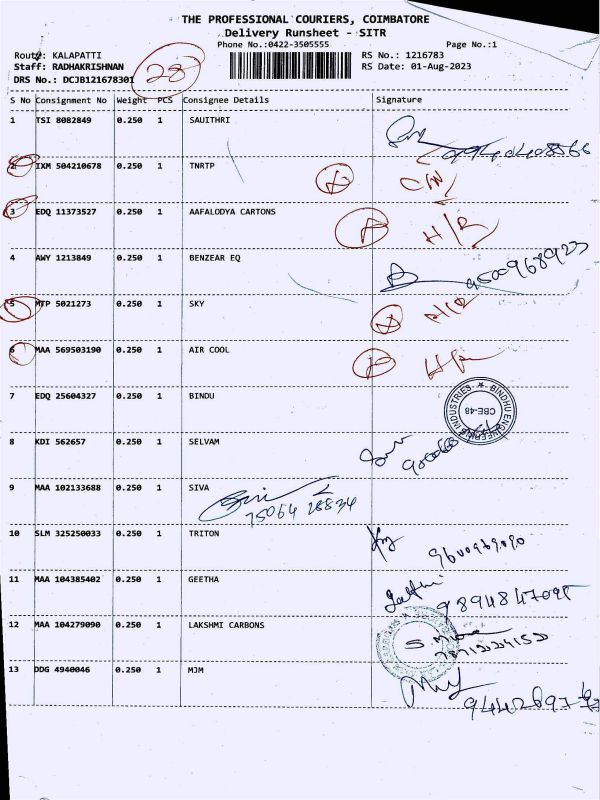 THE PROFESSIONAL COURIERS, COIMBATORE
Delivery Runsheet - SITR
Phone No.:0422-3505555 Page No.:1
Route: KALAPATTI RS No.: 1216783
Staff: RADHAKRISHNAN RS Date: 01-Aug-2023
DRS No.: DCJB121678301
28
S No Consignment No Weight PCS Consignee Details Signature
1 TSI 8082849 0.250 1 SAUITHRI
2 IXM 504210678 0.250 1 TNRTP
3 EDQ 11373527 0.250 1 AAFALODYA CARTONS H/R
4 AWY 1213849 0.250 1 BENZEAR EQ 9500968923
5 MTP 5021273 0.250 1 SKY
6 MAA 569503190 0.250 1 AIR COOL
7 EDQ 25604327 0.250 1 BINDU
BINDHU ENGINEERING INDUSTRIES
CBE-48
8 KDI 562657 0.250 1 SELVAM
9 MAA 102133688 0.250 1 SIVA
10 SLM 325250033 0.250 1 TRITON
11 MAA 104385402 0.250 1 GEETHA
12 MAA 104279090 0.250 1 LAKSHMI CARBONS
13 DDG 4940046 0.250 1 MJM